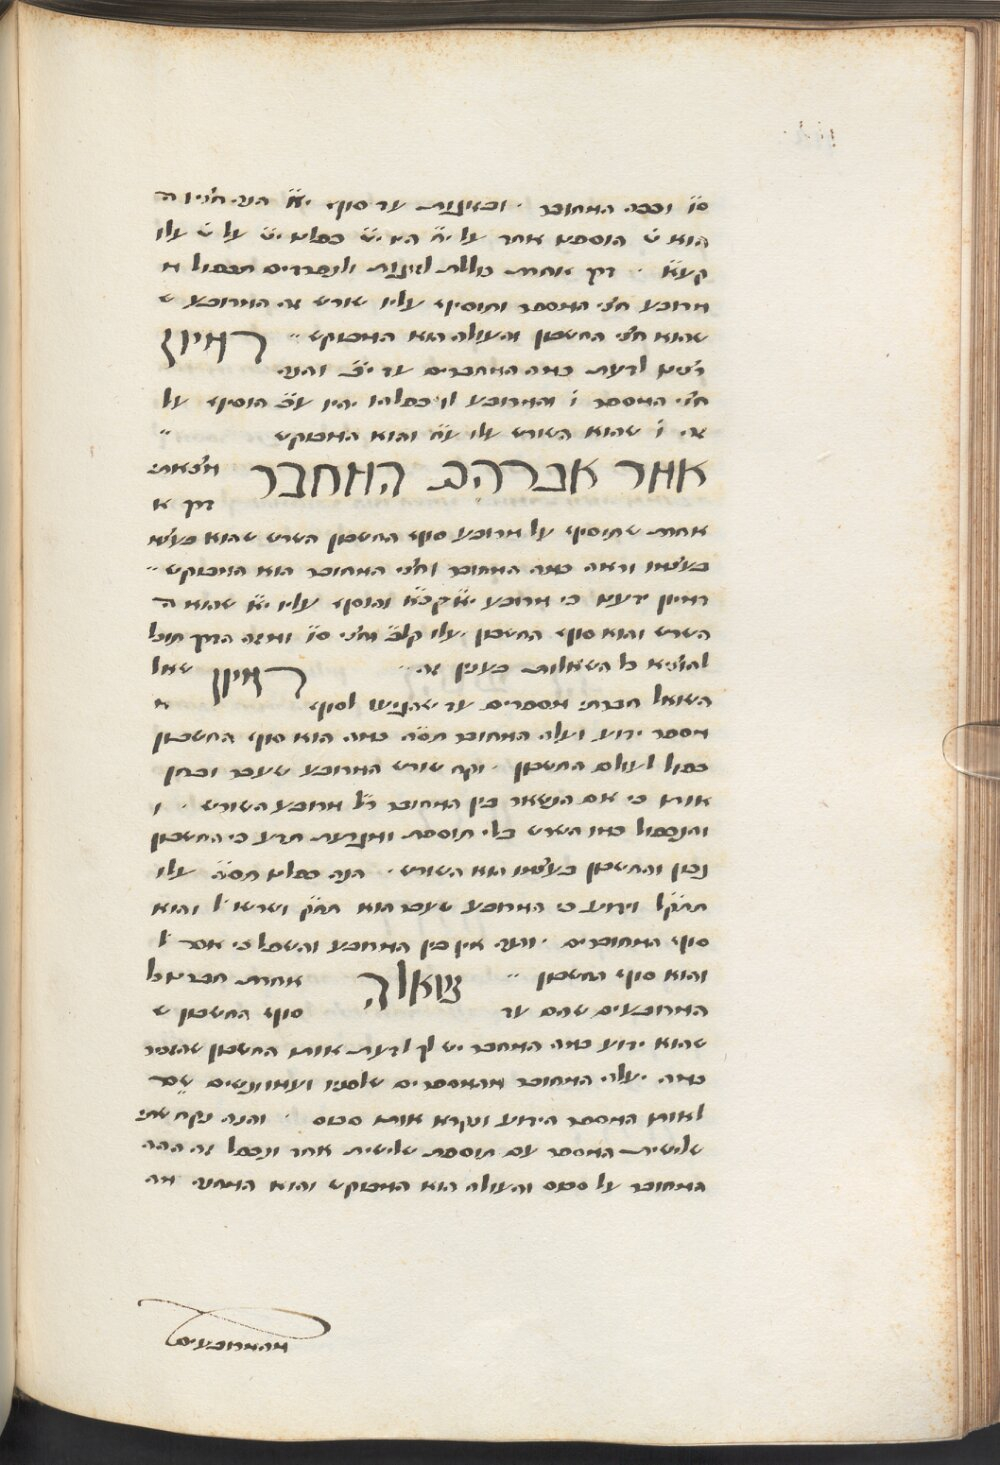 ס״ו וככה המחובר . ובזוגות עד סוף י״א הנה חציו ה
הוא ט׳ הוספנו אחד על י״ח היו י״ט כפלנו י״ט על ט׳ עלו
קע״א . דרך אחרת כוללת לזוגות ולנפרדים תכפול א
מרובע חצי המספר ותוסיף עליו שורש זה המרובע ש
שהוא חצי החשבון והעולה הוא המבוקש דמיון
רצינו לדעת כמה המחוברים עד י״ב והנה
חצי המספר ו׳ והמרובע ל״ו כפלנוהו יהיו ע״ב הוסיף על
זה ו׳ שהוא השורש עלו ע״ח והוא המבוקש
אמר אברהם המחבר מצאתי
דרך א
אחרת שתוסיף על מרובע סוף החשבון השרש שהוא כעצמו
בעצמו וראה כמה המחובר וחצי המחובר הוא המבוקש
דמיון ידענו כי מרובע י״א קכ״א והוסף עליו י״א שהוא ה
השרש והוא סוף החשבון יעלו קל״ב וחצים ס״ו ומזה הדרך תוכל
להוציא כל השאלות בענין זה דמיון שאל
השואל חברתי מספרים עד שהגיעו לסוף מ
מספר ידוע ועלה המחובר תס״ה כמה הוא סוף החשבון
כפול לעולם החשבון . וקח שורש המרובע שעבר ובחן
אותו כי אם הנשאר בין המחובר ר״ל מרובע השורש . ו
והנכפול כמו השרש בלי תוספת ומגרעת תדע כי החשבון
נכון והחשבון בעצמו הוא השורש . הנה כפלנו תס״ה עלו
תתק״ל וידוע כי המרובע שעבר הוא תת״ק ושרשו ל׳ והוא
סוף המחוברים . והנה אין בין המרובע והשפל כי אם ל׳
והוא סוף החשבון שאלה אחרת חברנו כל
המרובעים שהם עד סוף החשבון ש
שהוא ידוע כמה המחבר יש לך לדעת אותו החשבון שהזכיר
כמה יעלה המחובר מהמספרים שלפניו ועמו ונשים שם
לאותו המספר הידוע ונקרא אותו סכום . והנה נקח שתי
שלישית המספר עם תוספת שלישית אחד ונכפל זה ההה
המחובר על סכום והעולה הוא המבוקש והוא המחובר מה
מהמרובעים